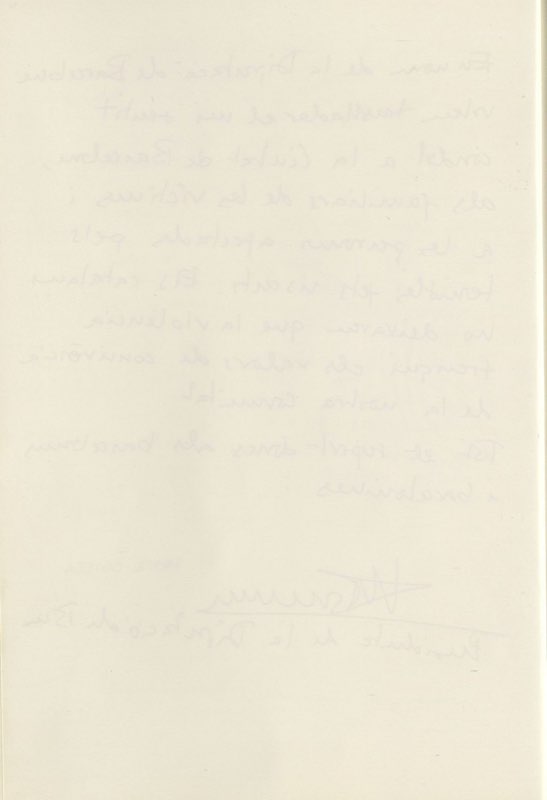 En nom de la Diputació de Barcelona
volem traslladar el
condol a la Ciutat de Barcelona,
als familiars de les víctimes i
a les persones afectades pels
terribles fets Els catalans
no deixarem que la violència
trenqui els valors de convivència
de la nostra Comunitat
Tot el suport als barcelonins
i barcelonines
de la Diputació de Bna